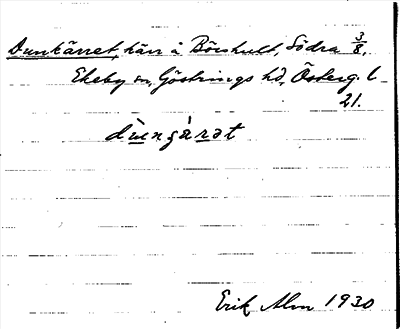 Dunkärret, kärr å Börshult, Södra 3/8,
Ekeby sn, Göstrings hd, Österg. l.
21.
dùngǻrət
Erik Alm 1930